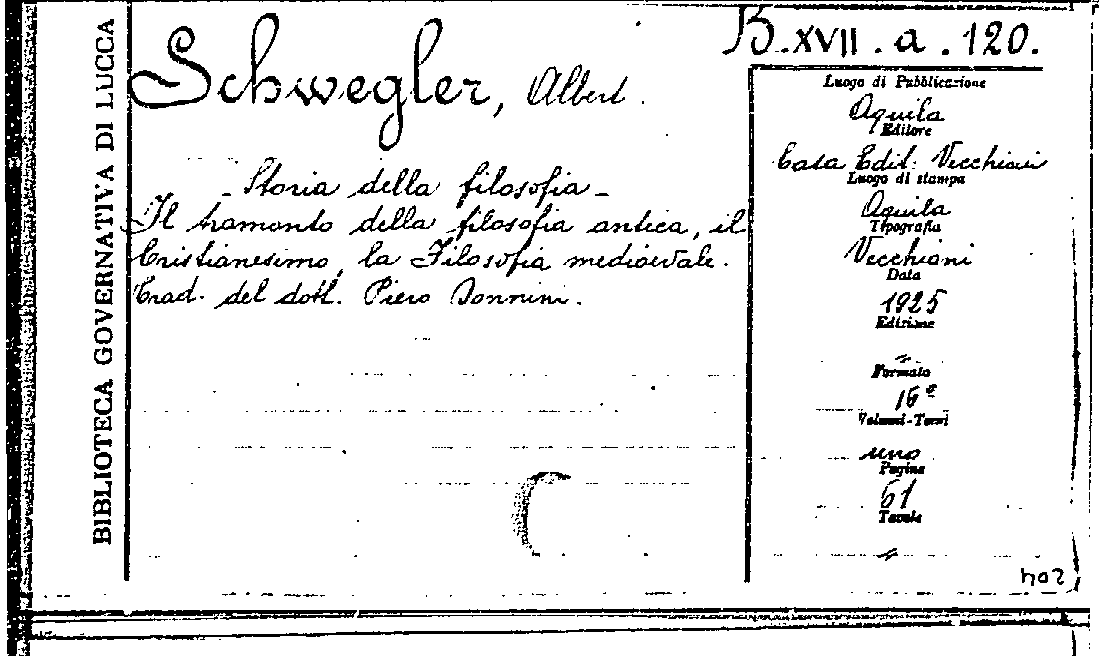 BIBLIOTECA GOVERNATIVA DI LUCCA
Schwegler, Albert.
B. XVII. a. 120.
- Storia della filosofia -
Il tramonto della filosofia antica, il
Cristianesimo, la Filosofia medioevale.
Trad. del dott. Piero Jannini.
Luogo di Pubblicazione
Aquila
Editore
Casa Edit. Vecchioni
Luogo di stampa
Aquila
Tipografia
Vecchioni
Data
1925
Edizione
Formato
16°
Volumi-Tomi
uno
Pagine
61
Tavole